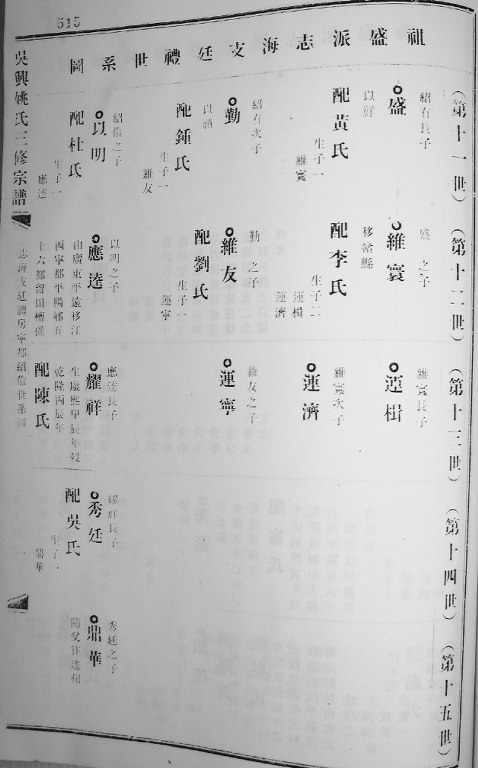 515
祖盛派志海支廷禮世系圖
吳興姚氏三修宗譜
志海支廷禮房寧都紹倫世系圖
(第十一世)
(第十二世)
(第十三世)
(第十四世)
(第十五世)
紹有長子
盛
以
配黃氏
生子一
維寰
紹有次子
勤
以
配鍾氏
生子一
維友
紹倫之子
以明
配杜氏
生子一
應逵
盛之子
維寰
移
縣
配李氏
生子二
運楫
運濟
勤之子
維友
配劉氏
生子一
運寧
以明之子
應逵
由廣東平遠移江
西寧都平陽鄉五
十六都留田
維寰長子
運楫
維寰次子
運濟
維友之子
運寧
應逵長子
耀祥
生康熙甲辰年歿
乾隆丙辰年
配陳氏
耀祥長子
秀廷
配吳氏
生子一
鼎華
秀廷之子
鼎華
隨父往
州